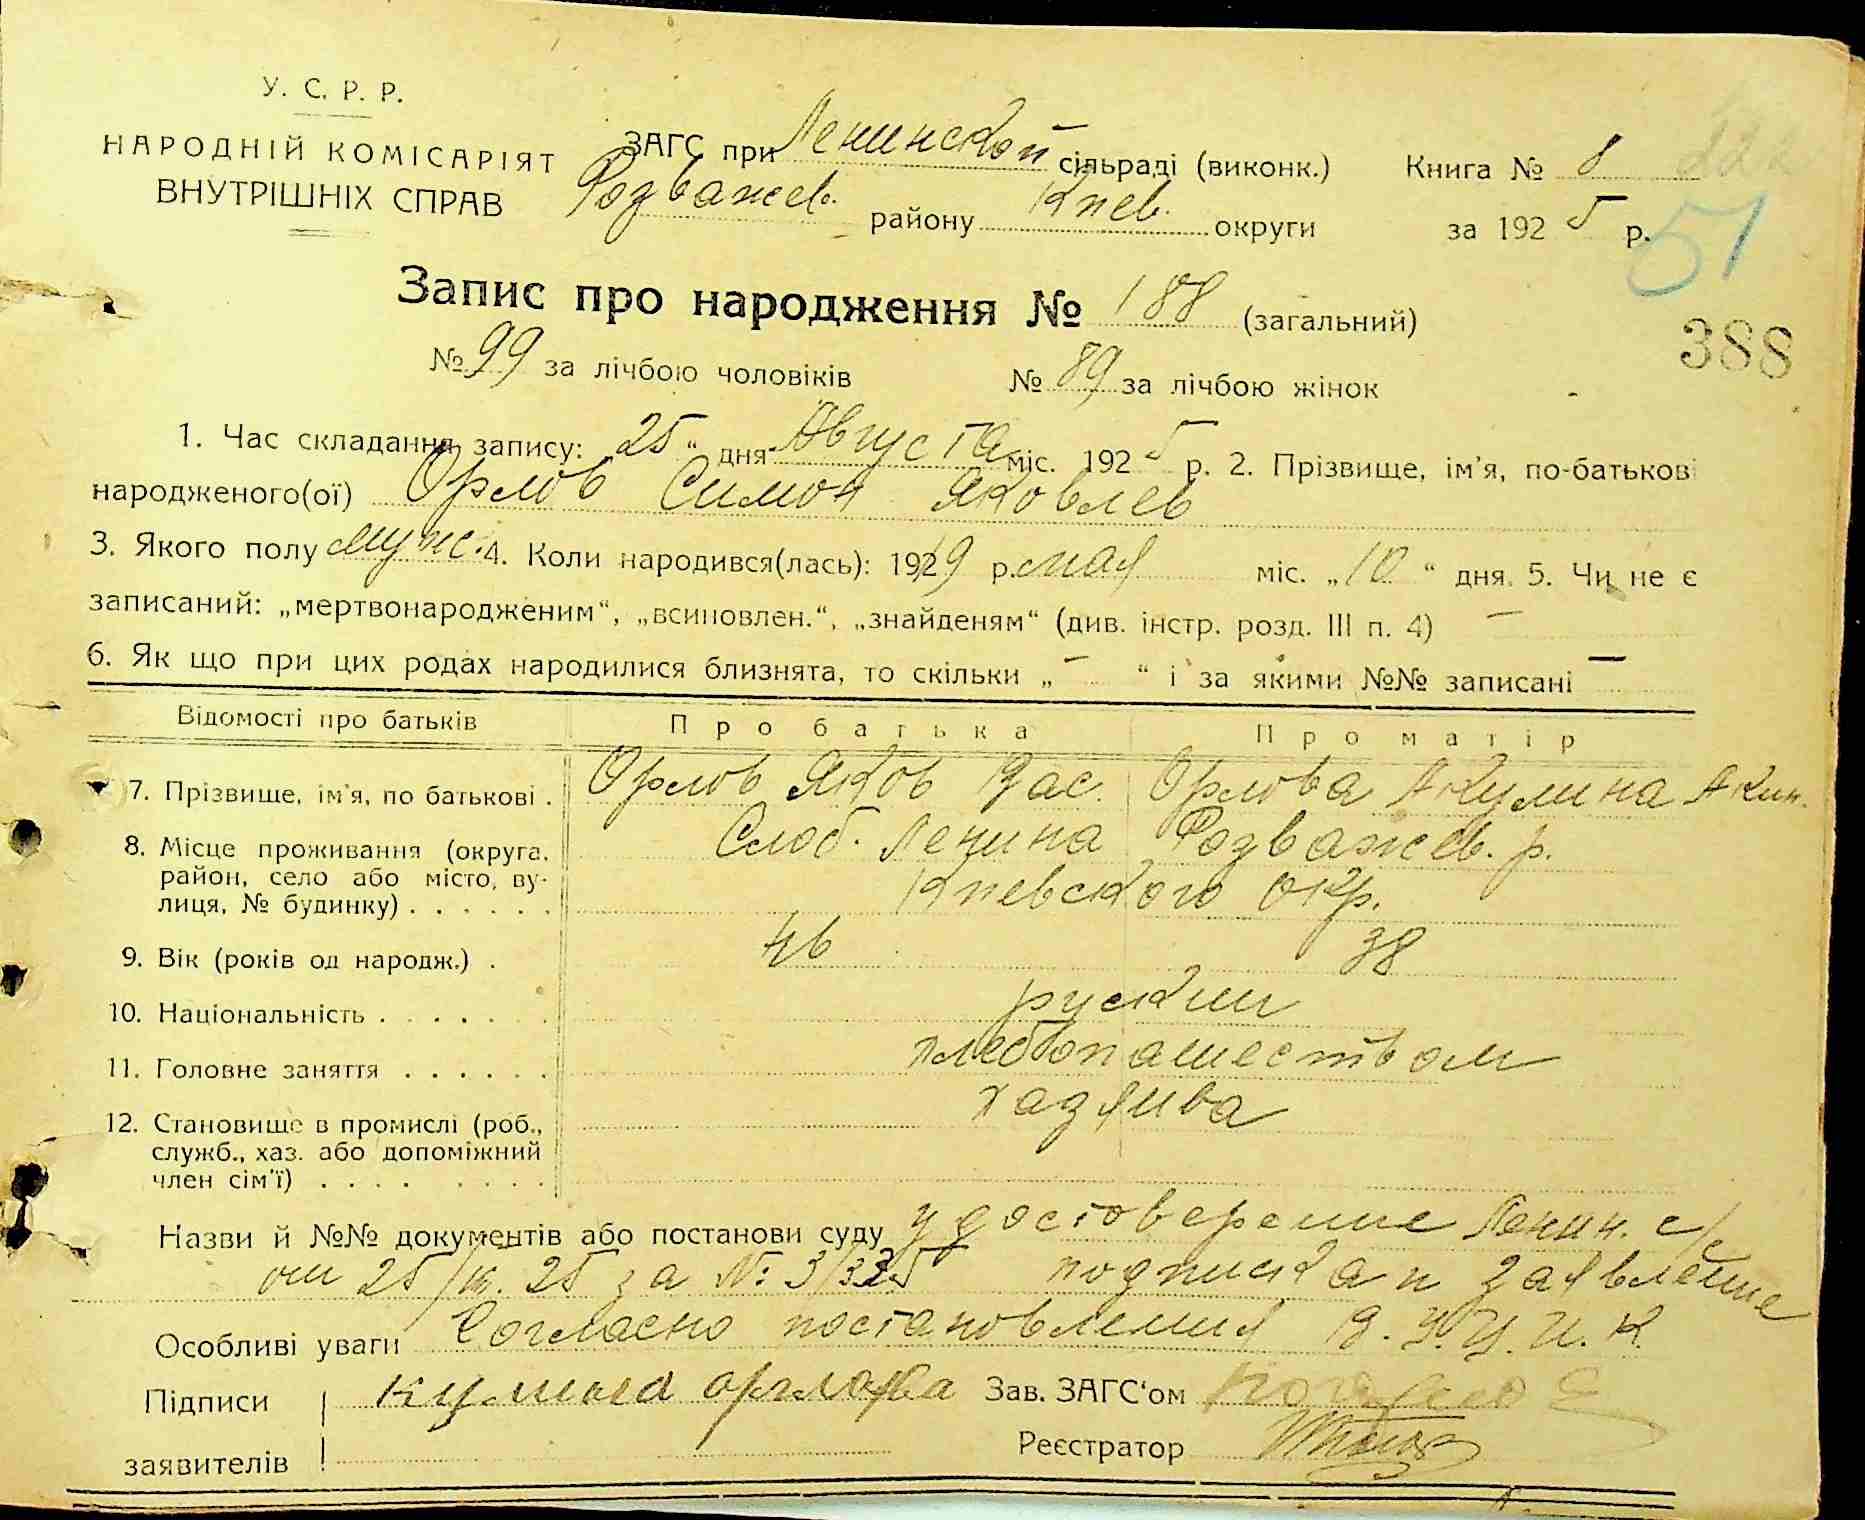 У. С. Р. Р.
НАРОДНІЙ КОМІСАРІЯТ
ВНУТРІШНІХ СПРАВ
ЗАГС при Ленинской сільраді (виконк.)
Розважев. району Киев. округи
Книга № 8
за 1925 р.
51
388
Запис про народження № 188 (загальний)
№ 99 за лічбою чоловіків № 89 за лічбою жінок
1. Час складання запису: 25 " дня Августа міс. 1925 р. 2. Прізвище, ім'я, по-батькові
народженого(ої) Орлов Симон Яковлев
3. Якого полу муж. 4. Коли народився(лась): 1919 р. мая міс. „10 “ дня. 5. Чи не є
записаний: „мертвонародженим“, „всиновлен.“, „знайденям“ (див. інстр. розд. III п. 4) —
6. Як що при цих родах народилися близнята, то скільки „ — “ і за якими №№ записані —
Відомості про батьків Про батька Про матір
7. Прізвище, ім'я, по батькові . Орлов Яков Вас. Орлова Акулина Аким.
8. Місце проживання (округа, район, село або місто, вулиця, № будинку) . . . . . . Слоб. Ленина Розважев. р.
Киевского окр.
9. Вік (років од народж.) . 46 38
10. Національність . . . . . . руский
11. Головне заняття . . . . . . хлебопашеством
12. Становище в промислі (роб., служб., хаз. або допоміжний член сім'ї) . . . . хазяива
Назви й №№ документів або постанови суду удостоверение Ленин. с/с
от 25/ 25 за № подписка и заявление
Особливі уваги Согласно постановления В. У. Ц. И. К.
Підписи
заявителів
Зав. ЗАГС'ом
Реєстратор